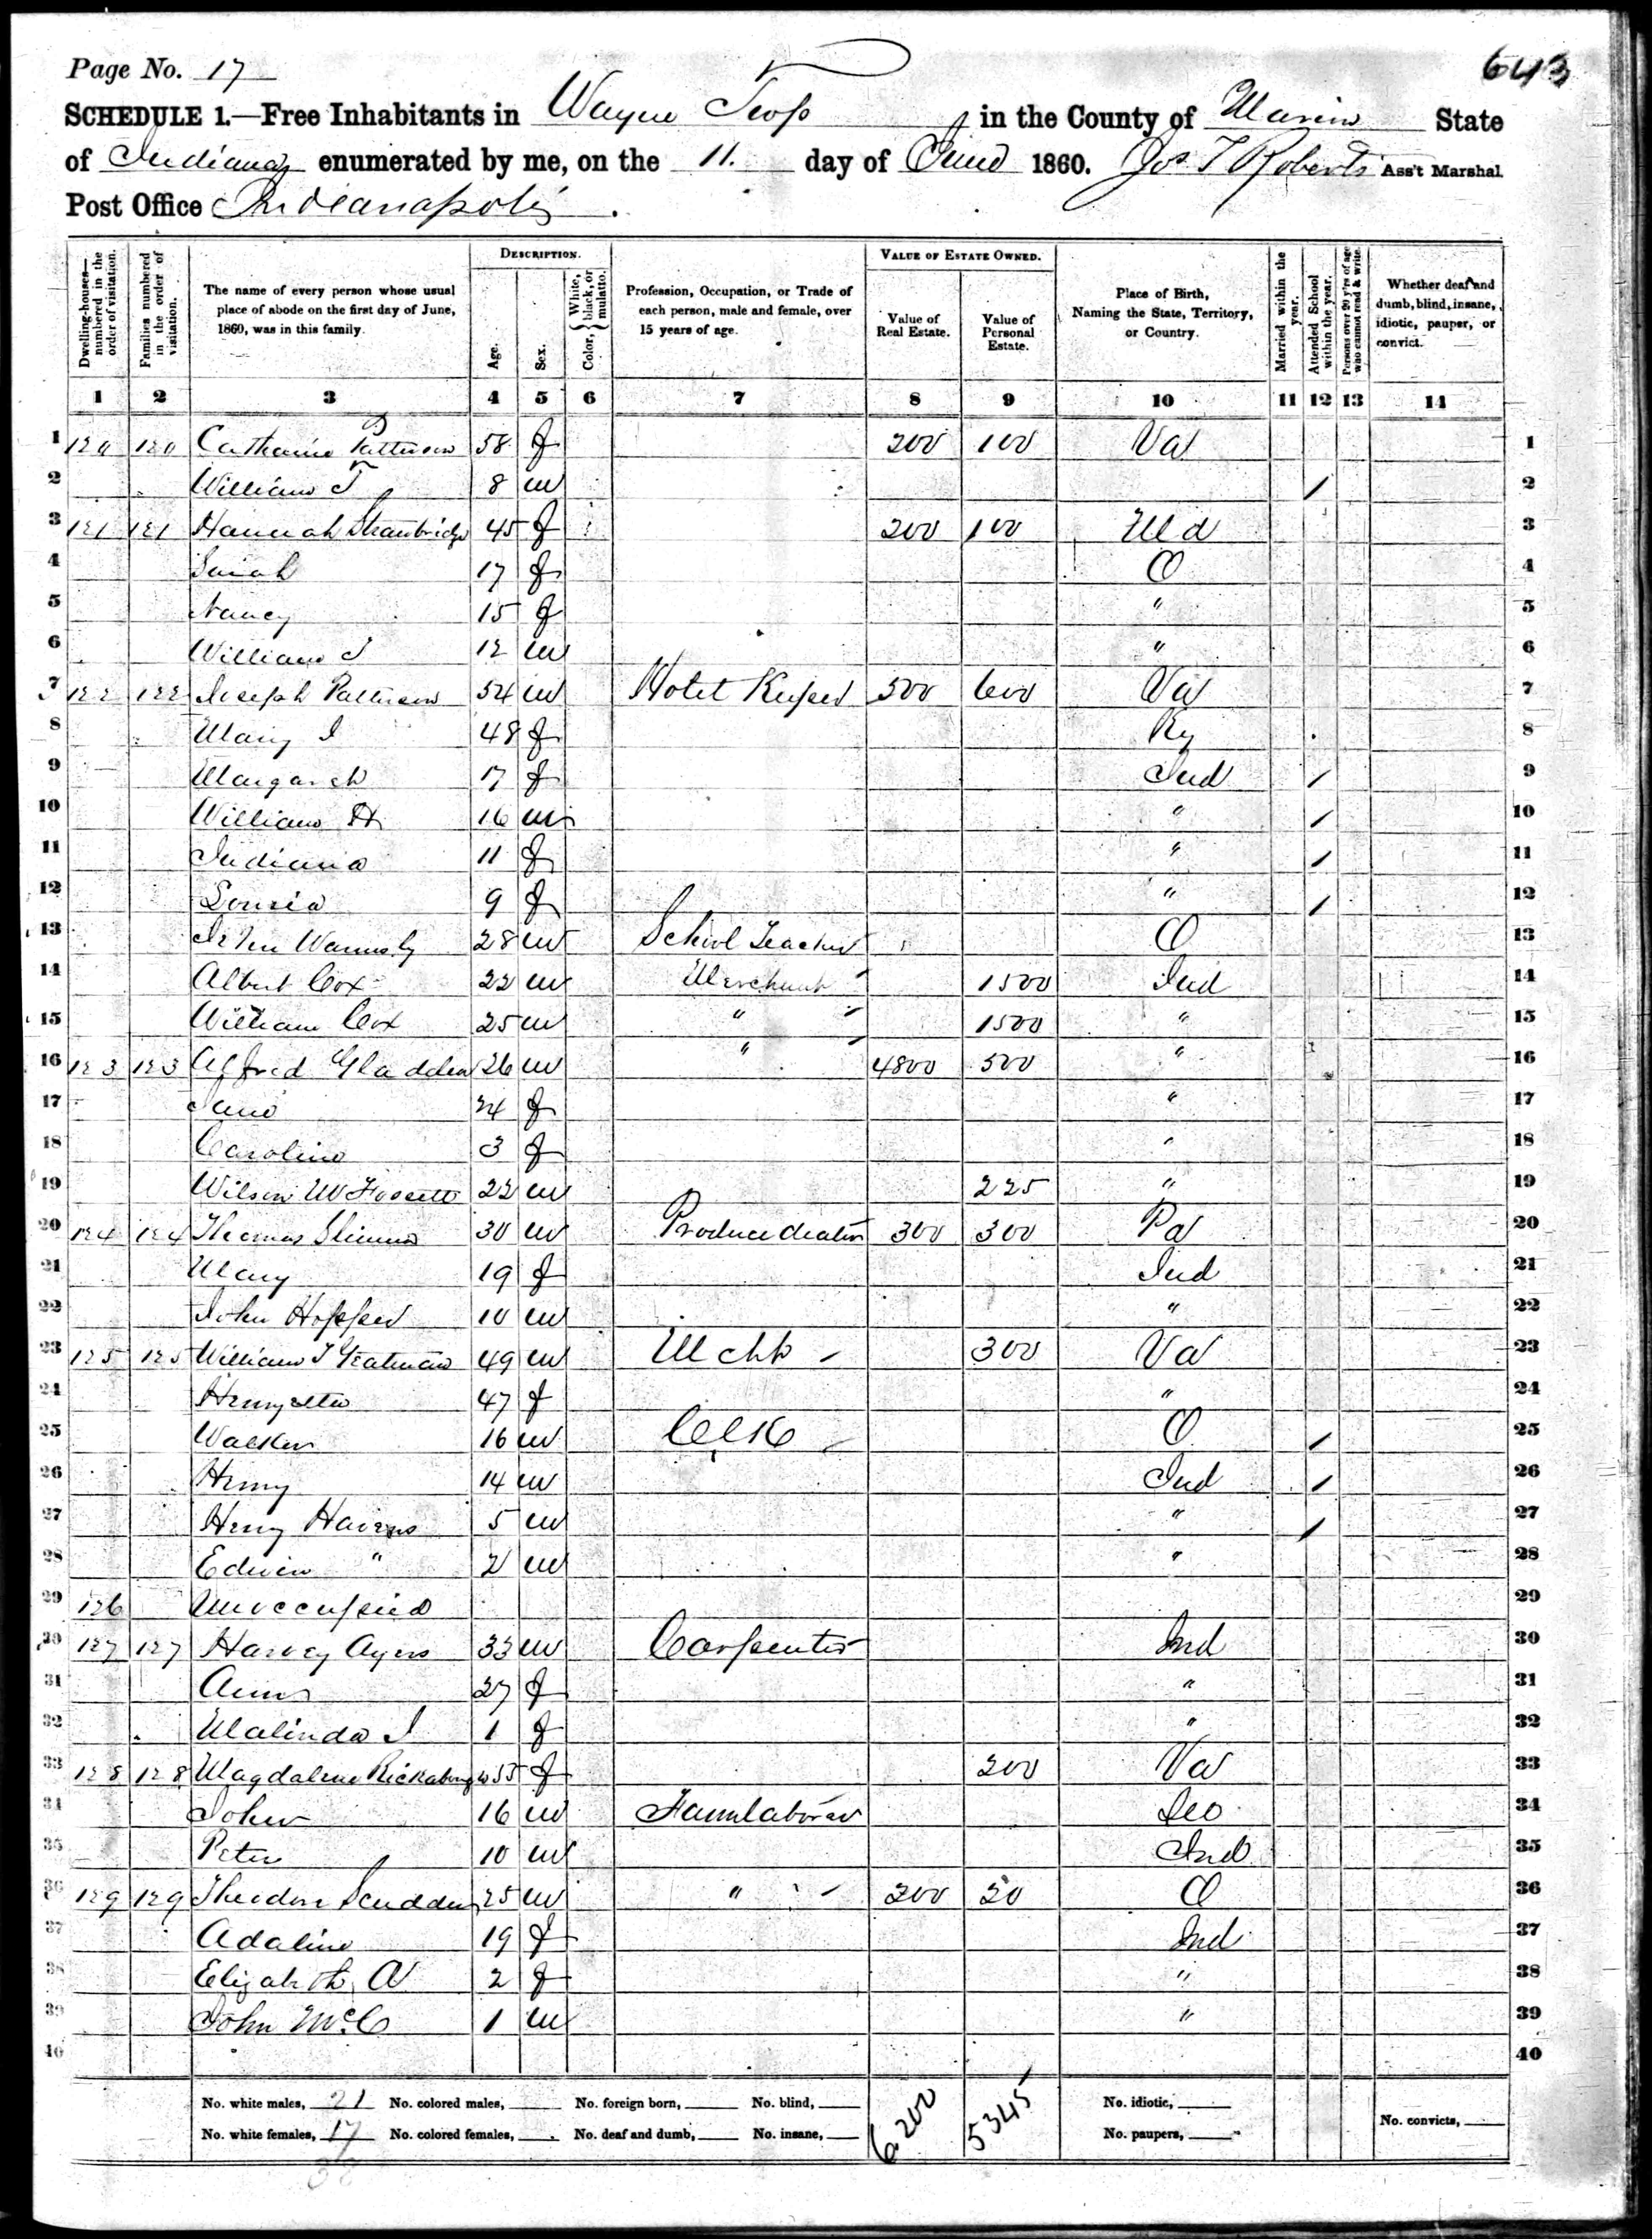 Page No. 17
643
SCHEDULE 1.—Free Inhabitants in Wayne Twp in the County of Marion State
of Indiana enumerated by me, on the 11. day of June 1860. Jos T Roberts Ass't Marshal
Post Office Indianapolis.
Dwelling-houses—numbered in the order of visitation.
Families numbered in the order of visitation.
The name of every person whose usual place of abode on the first day of June, 1860, was in this family.
DESCRIPTION.
Age.
Sex.
Color, White, black, or mulatto.
Profession, Occupation, or Trade of each person, male and female, over 15 years of age.
VALUE OF ESTATE OWNED.
Value of Real Estate.
Value of Personal Estate.
Place of Birth, Naming the State, Territory, or Country.
Married within the year.
Attended School within the year.
Persons over 20 y'rs of age who cannot read & write.
Whether deaf and dumb, blind, insane, idiotic, pauper, or convict.
1 2 3 4 5 6 7 8 9 10 11 12 13 14
1 120 120 Catharine Patterson 58 f 200 100 Va 1
2 William T 8 m / 2
3 121 121 Hannah Strawbridge 45 f 200 100 Md 3
4 Sarah 17 f O 4
5 Nancy 15 f " 5
6 William J 12 m " 6
7 122 122 Joseph Patterson 54 m Hotel Keeper 500 600 Va 7
8 Mary J 48 f Ky 8
9 Margaret 17 f Ind / 9
10 William H 16 m " / 10
11 Indiana 11 f " / 11
12 Louisa 9 f " / 12
13 John 28 m School Teacher O 13
14 Albert Cox 22 m Merchant 1500 Ind 14
15 William Cox 25 m " 1500 " 15
16 123 123 Alfred Gladden 26 m " 4800 500 " 16
17 Jane 24 f " 17
18 Caroline 3 f " 18
19 Wilson 22 m 225 " 19
20 124 124 Thomas 30 m Produce dealer 300 300 Pa 20
21 Mary 19 f Ind 21
22 John Hopper 10 m " 22
23 125 125 William T 49 m 300 Va 23
24 Henryetta 47 f " 24
25 Walker 16 m Clk O / 25
26 Henry 14 m Ind / 26
27 Henry Havens 5 m " / 27
28 Edwin " 2 m " 28
29 126 Unoccupied 29
30 127 127 Harvey Ayers 33 m Carpenter Ind 30
31 Ann 27 f " 31
32 Malinda J 1 f " 32
33 128 128 Magdalene 55 f 200 Va 33
34 John 16 m Farm laborer 34
35 Peter 10 m Ind 35
36 129 129 Theodore Scudder 25 m " 200 20 O 36
37 Adaline 19 f Ind 37
38 Elizabeth A 2 f " 38
39 John McC 1 m " 39
40 40
No. white males, 21 No. colored males, No. foreign born, No. blind, 6200 5345 No. idiotic, No. convicts,
No. white females, 17 No. colored females, No. deaf and dumb, No. insane, No. paupers,
38